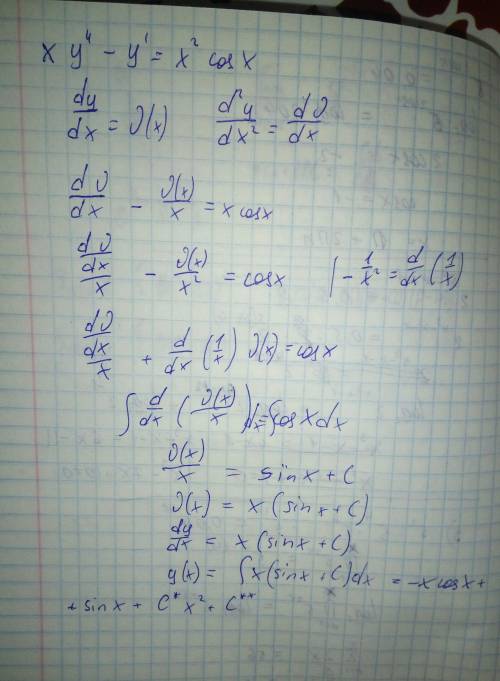 x y'' - y' = x² cos x
dy/dx = V(x)    d²y/dx² = dV/dx
dV/dx - V(x)/x = x cos x
(dV/dx)/x - V(x)/x² = cos x    | - 1/x² = d/dx (1/x)
(dV/dx)/x + d/dx (1/x) V(x) = cos x
∫ d/dx (V(x)/x) dx = ∫ cos x dx
V(x)/x = sin x + C
V(x) = x (sin x + C)
dy/dx = x (sin x + C)
y(x) = ∫ x (sin x + C) dx = -x cos x +
+ sin x + C* x² + C**